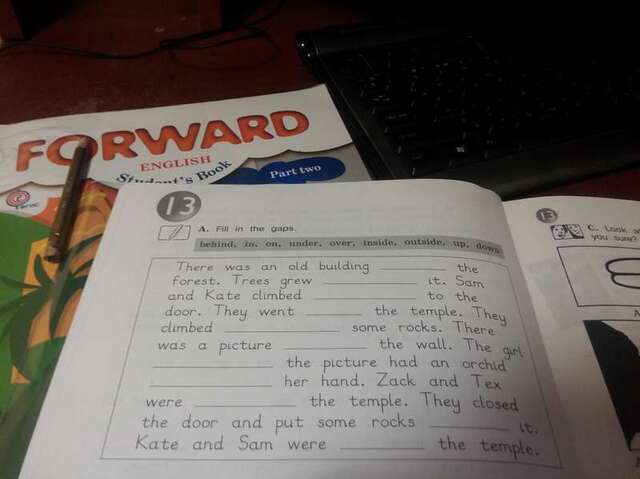 FORWARD
ENGLISH
Student's Book
Part two
13
A. Fill in the gaps.
behind, in, on, under, over, inside, outside, up, down
There was an old building ________ the
forest. Trees grew ________ it. Sam
and Kate climbed ________ to the
door. They went ________ the temple. They
climbed ________ some rocks. There
was a picture ________ the wall. The girl
________ the picture had an orchid
________ her hand. Zack and Tex
were ________ the temple. They closed
the door and put some rocks ________ it.
Kate and Sam were ________ the temple.
13
C. Look
you sure?